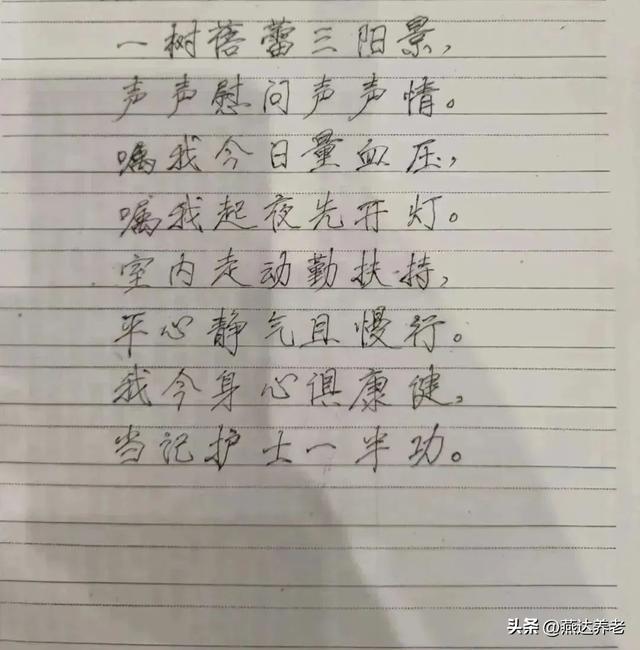 一树蓓蕾三阳景，
声声慰问声声情。
嘱我今日量血压，
嘱我起夜先开灯。
室内走动勤扶持，
平心静气且慢行。
我今身心俱康健，
当记护士一半功。
头条 @燕达养老